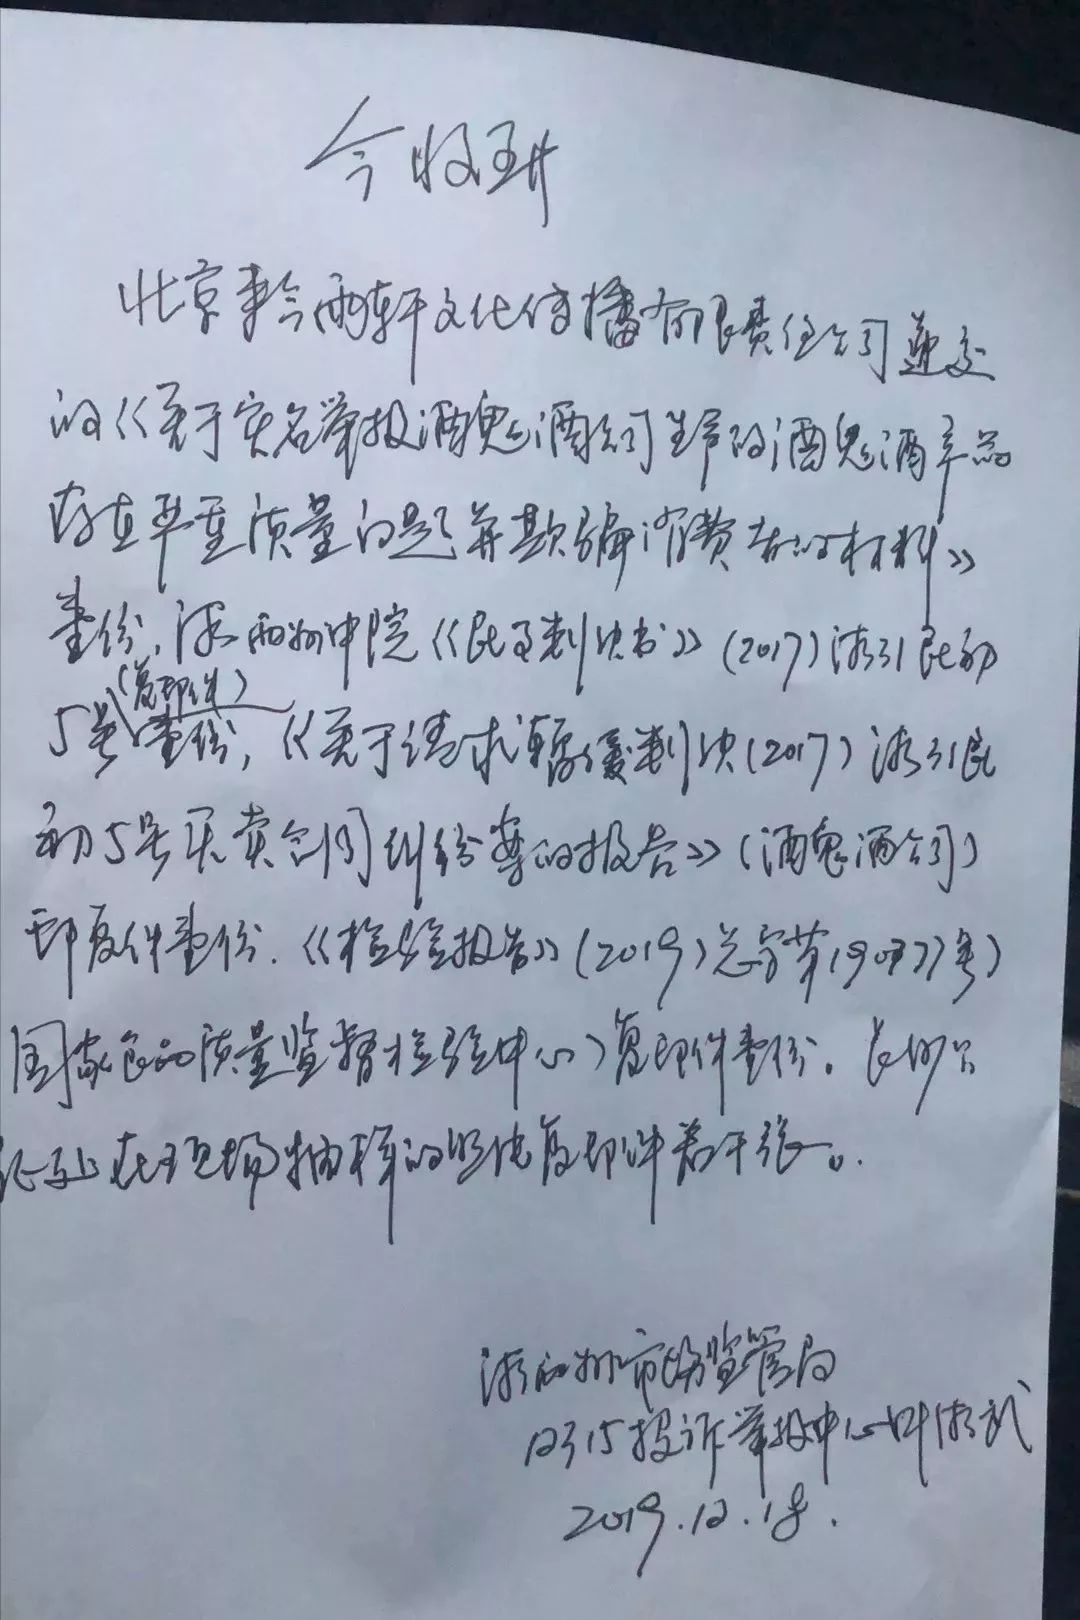 今收到
北京来今雨轩文化传播有限责任公司递交
的《关于实名举报酒鬼酒公司生产的酒鬼酒产品
存在严重质量问题并欺骗消费者的材料》
壹份，湘西州中院《民事判决书》(2017)湘31民初
5号(复印件)壹份，《关于请求暂缓判决(2017)湘31民
初5号买卖合同纠纷案的报告》(酒鬼酒公司)
印复件壹份.《检验报告》(2019)总字第
国家食品质量监督检验中心)复印件壹份。长沙公
证处在现场抽样的照片复印件若干张。
湘西州市场监管局
12315投诉举报中心 湘武
2019.12.18.